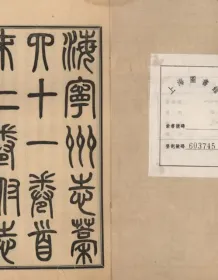 海寧州志藁
四十一卷首
末二卷附志
上海圖書館
603745